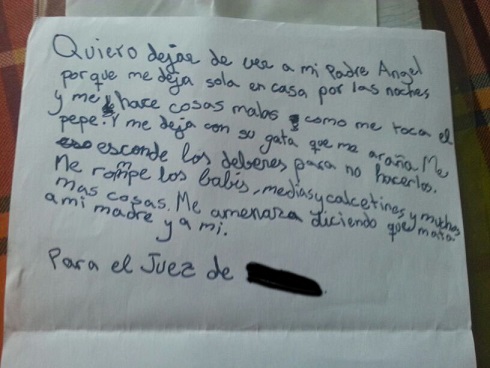 Quiero dejar de ver a mi Padre Angel
porque me deja sola en casa por las noches
y me hace cosas malas como me toca el
pepe. Y me deja con su gata que me araña. Me
esconde los deberes para no hacerlos.
Me rompe los babis, medias y calcetines y muchas
mas cosas. Me amenaza diciendo que mata
a mi madre y a mi.
Para el Juez de